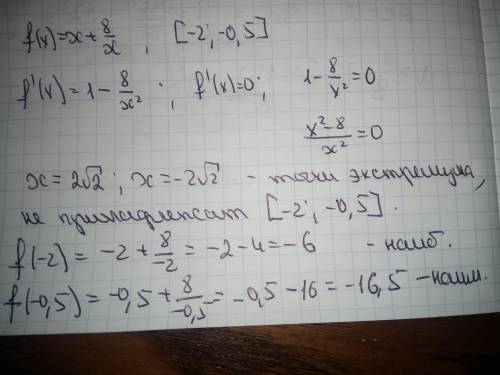 f(x)=x+8/x , [-2; -0,5]
f'(x)=1-8/x² ; f'(x)=0; 1-8/x²=0
x²-8/x²=0
x=2√2; x=-2√2 - точки экстремума,
не принадлежат [-2; -0,5].
f(-2) = -2+8/-2=-2-4=-6 - наиб.
f(-0,5)=-0,5+8/-0,5=-0,5-16=-16,5 -наим.